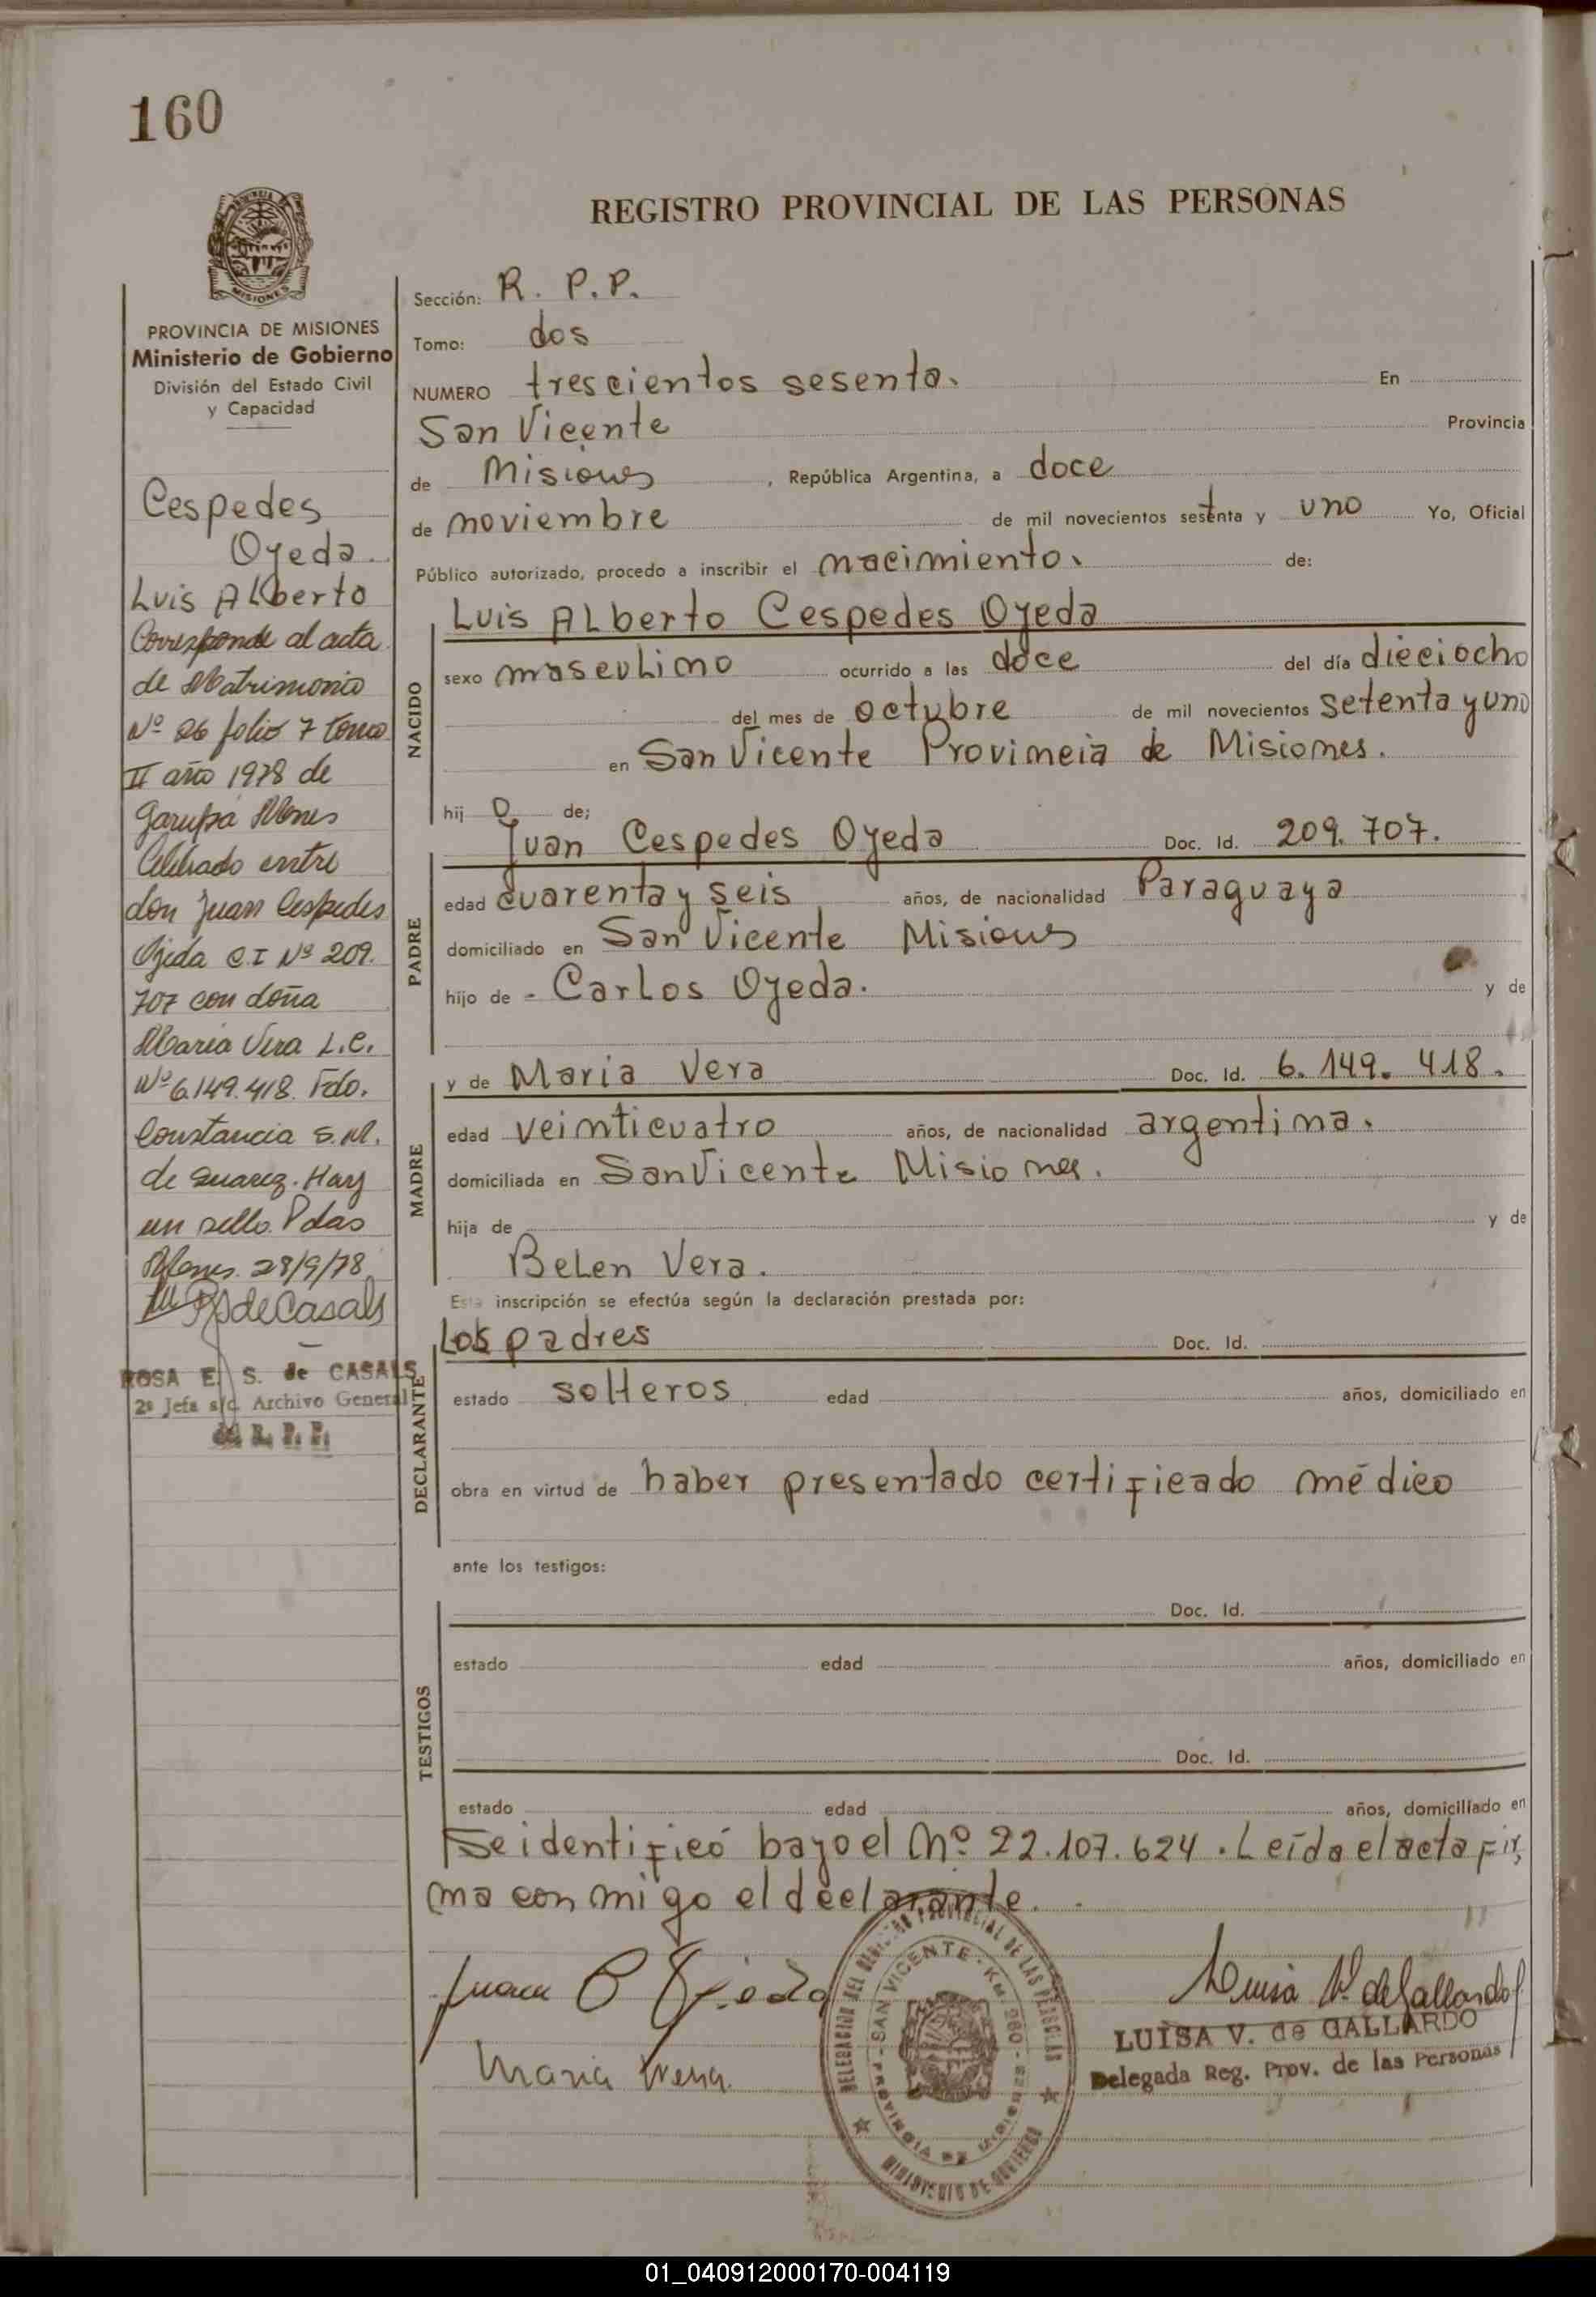 160
REGISTRO PROVINCIAL DE LAS PERSONAS
MISIONES
PROVINCIA DE MISIONES
Ministerio de Gobierno
División del Estado Civil
y Capacidad
Cespedes
Ojeda.
Luis Alberto
Corresponde al acta
de Matrimonio
Nº 26 folio 7 tomo
II año 1978 de
Garupá Mnes
Celebrado entre
don Juan Cespedes
Ojeda C.I Nº 209.
707 con doña
Maria Vera L.C.
Nº 6.149.418. Fdo.
Constancia S.M.
de Suarez. Hay
un sello. Pdas
Mnes. 28/9/78
de Casals
ROSA E. S. de CASALS
2º Jefa s/c. Archivo General
del R. P. P.
Sección: R. P. P.
Tomo: dos
NUMERO trescientos sesenta. En
San Vicente Provincia
de Misiones, República Argentina, a doce
de noviembre de mil novecientos setenta y uno Yo, Oficial
Público autorizado, procedo a inscribir el nacimiento. de:
NACIDO
Luis Alberto Cespedes Ojeda
sexo masculino ocurrido a las doce del día dieciocho
del mes de octubre de mil novecientos setenta y uno
en San Vicente Provincia de Misiones.
hij o de;
PADRE
Juan Cespedes Ojeda Doc. Id. 209. 707.
edad cuarenta y seis años, de nacionalidad Paraguaya
domiciliado en San Vicente Misiones
hijo de - Carlos Ojeda. y de
MADRE
y de Maria Vera Doc. Id. 6. 149. 418.
edad veinticuatro años, de nacionalidad argentina.
domiciliada en San Vicente Misiones.
hija de y de
Belen Vera.
Esta inscripción se efectúa según la declaración prestada por:
DECLARANTE
Los padres Doc. Id.
estado solteros edad años, domiciliado en
obra en virtud de haber presentado certificado médico
ante los testigos:
TESTIGOS
Doc. Id.
estado edad años, domiciliado en
Doc. Id.
estado edad años, domiciliado en
Se identificó bajo el Nº 22.107.624. Leída el acta fir
ma con migo el declarante.
Juan C Ojeda
Maria Vera
DELEGACION DEL REGISTRO PROVINCIAL DE LAS PERSONAS
SAN VICENTE - KM. 260 - PROVINCIA DE MISIONES
MINISTERIO DE GOBIERNO
Luisa V. de Gallardo
LUISA V. de GALLARDO
Delegada Reg. Prov. de las Personas
01_040912000170-004119